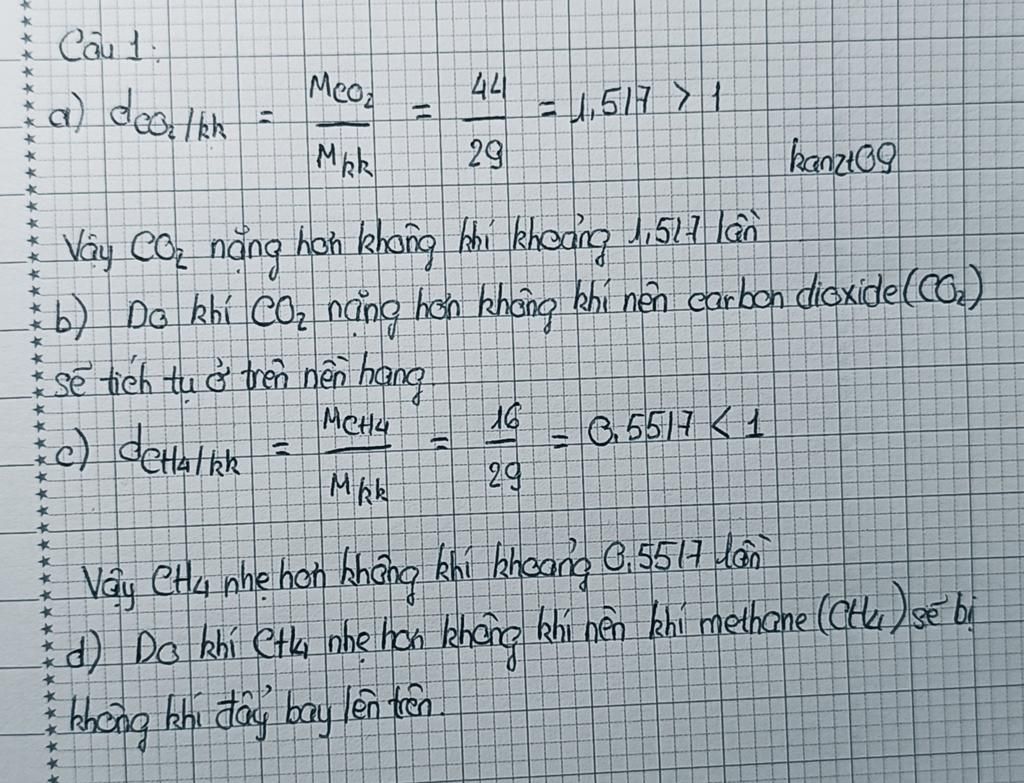 Câu 1:
a) dCO₂/kk = MCO₂ / Mkk = 44 / 29 = 1,517 > 1
kanzt09
Vậy CO₂ nặng hơn không khí khoảng 1,517 lần
b) Do khí CO₂ nặng hơn không khí nên carbon dioxide (CO₂)
sẽ tích tụ ở trên nền hang
c) dCH4/kk = MCH4 / Mkk = 16 / 29 = 0,5517 < 1
Vậy CH4 nhẹ hơn không khí khoảng 0,5517 lần
d) Do khí CH4 nhẹ hơn không khí nên khí methane (CH4) sẽ bị
không khí đẩy bay lên trên.